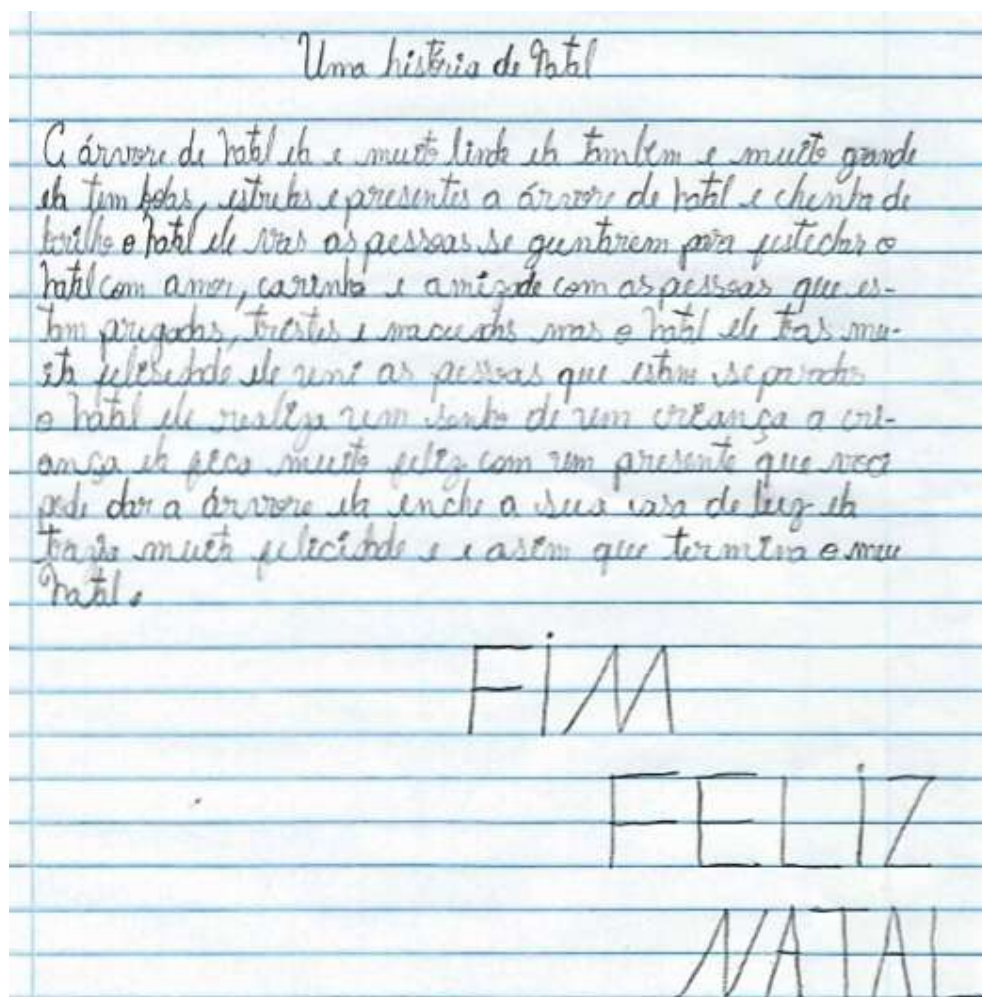 Uma história de Natal
A árvore de natal ela e muito linda ela tambem e muito grande
ela tem bolas, estrelas e presentes a árvore de natal e chenha de
brilho o natal ele vas as pessoas se guntarem para festeclar o
natal com amor, carinho e amizade com as pessoas que es-
tam tristes e mas o natal ele tras mu-
ita felisidade ele uni as pessoas que estam separadas
o natal ele realiza um sonho de um criança a cri-
ança ela fica muito feliz com um presente que voce
pode dar a árvore ela enche a sua casa de luz ela
muita felicidade e e asim que termina o meu
natal.
FIM
FELIZ
NATAL